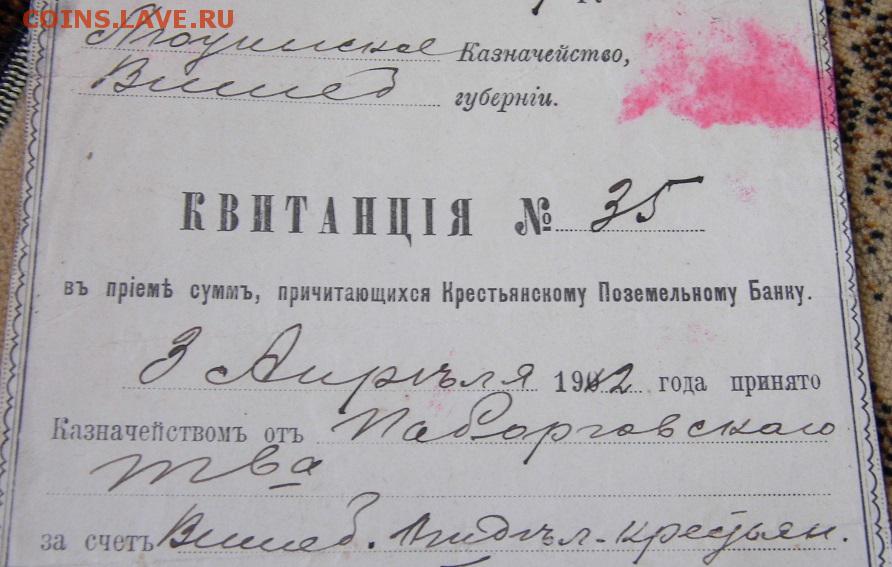 COINS.LAVE.RU
Казначейство,
Витеб губерніи.
КВИТАНЦІЯ № 35
въ пріемѣ суммъ, причитающихся Крестьянскому Поземельному Банку.
3 Апрѣля 1912 года принято
Казначействомъ отъ
тва
за счетъ Витеб. Отдѣл. Крестьян.